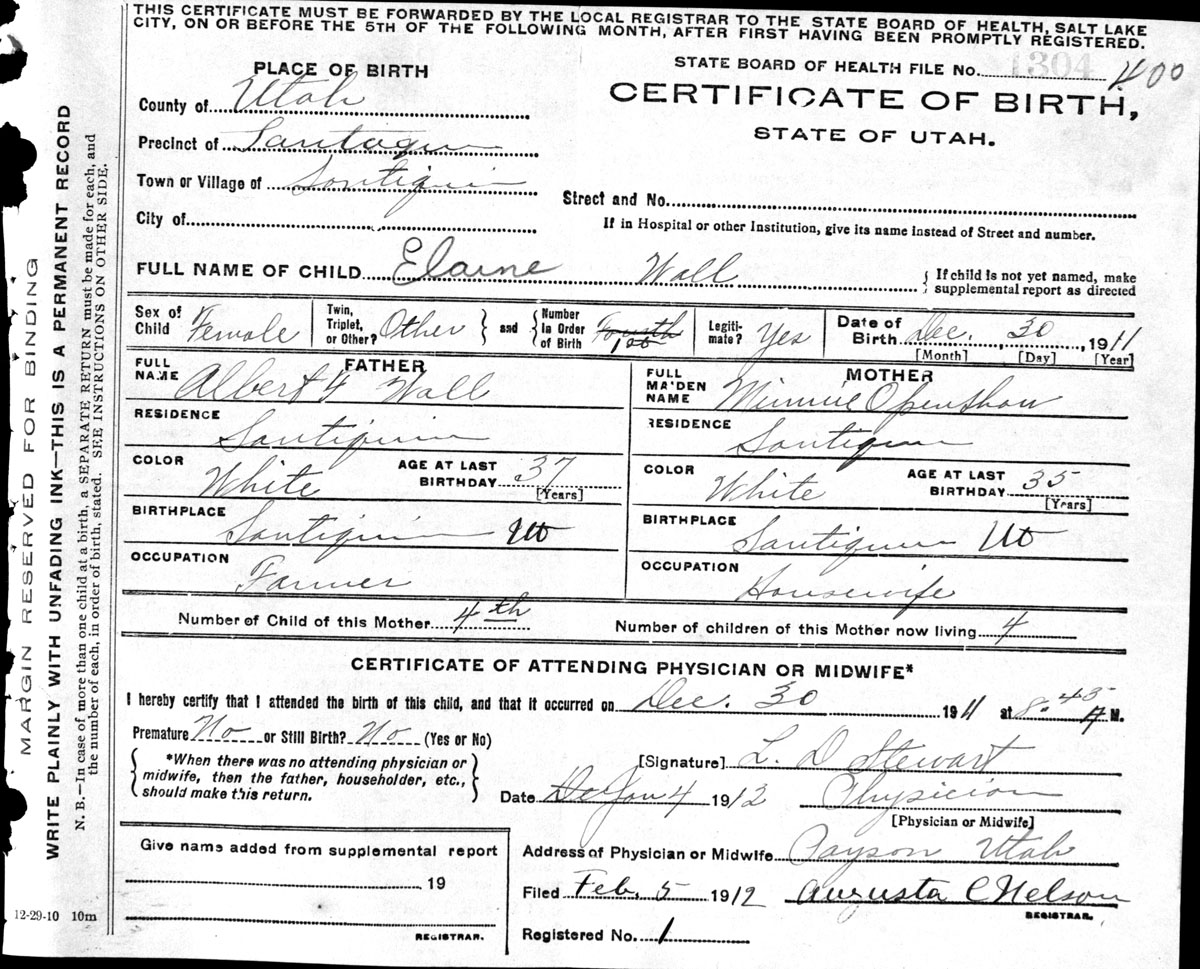 THIS CERTIFICATE MUST BE FORWARDED BY THE LOCAL REGISTRAR TO THE STATE BOARD OF HEALTH, SALT LAKE
CITY, ON OR BEFORE THE 5TH OF THE FOLLOWING MONTH, AFTER FIRST HAVING BEEN PROMPTLY REGISTERED.
MARGIN RESERVED FOR BINDING
WRITE PLAINLY WITH UNFADING INK—THIS IS A PERMANENT RECORD
N. B.—In case of more than one child at a birth, a SEPARATE RETURN must be made for each, and
the number of each, in order of birth, stated. SEE INSTRUCTIONS ON OTHER SIDE.
PLACE OF BIRTH
County of Utah
Precinct of Santaquin
Town or Village of Santiquin
City of
STATE BOARD OF HEALTH FILE No. 1304 400
CERTIFICATE OF BIRTH,
STATE OF UTAH.
Street and No.
If in Hospital or other Institution, give its name instead of Street and number.
FULL NAME OF CHILD Elaine Wall
If child is not yet named, make
supplemental report as directed
Sex of Child Female
Twin, Triplet, or Other? Other
and Number in Order of Birth Fourth
Legiti-mate? Yes
Date of Birth Dec. 30, 1911
[Month] [Day] [Year]
FATHER
FULL NAME Albert F Wall
RESIDENCE Santiquin
COLOR White AGE AT LAST BIRTHDAY 37
[Years]
BIRTHPLACE Santiquin Ut
OCCUPATION Farmer
MOTHER
FULL MAIDEN NAME Minnie Openshaw
RESIDENCE Santiquin
COLOR White AGE AT LAST BIRTHDAY 35
[Years]
BIRTHPLACE Santiquin Ut
OCCUPATION Housewife
Number of Child of this Mother 4th Number of children of this Mother now living 4
CERTIFICATE OF ATTENDING PHYSICIAN OR MIDWIFE*
I hereby certify that I attended the birth of this child, and that it occurred on Dec. 30 1911 at 8:45 A M.
Premature No or Still Birth? No (Yes or No)
*When there was no attending physician or
midwife, then the father, householder, etc.,
should make this return.
[Signature] L. D Stewart
Date Jan 4 1912 Physician
[Physician or Midwife]
Give name added from supplemental report
19
REGISTRAR.
12-29-10 10m
Address of Physician or Midwife Payson Utah
Filed Feb. 5 1912 Augusta C Nelson
REGISTRAR.
Registered No. 1